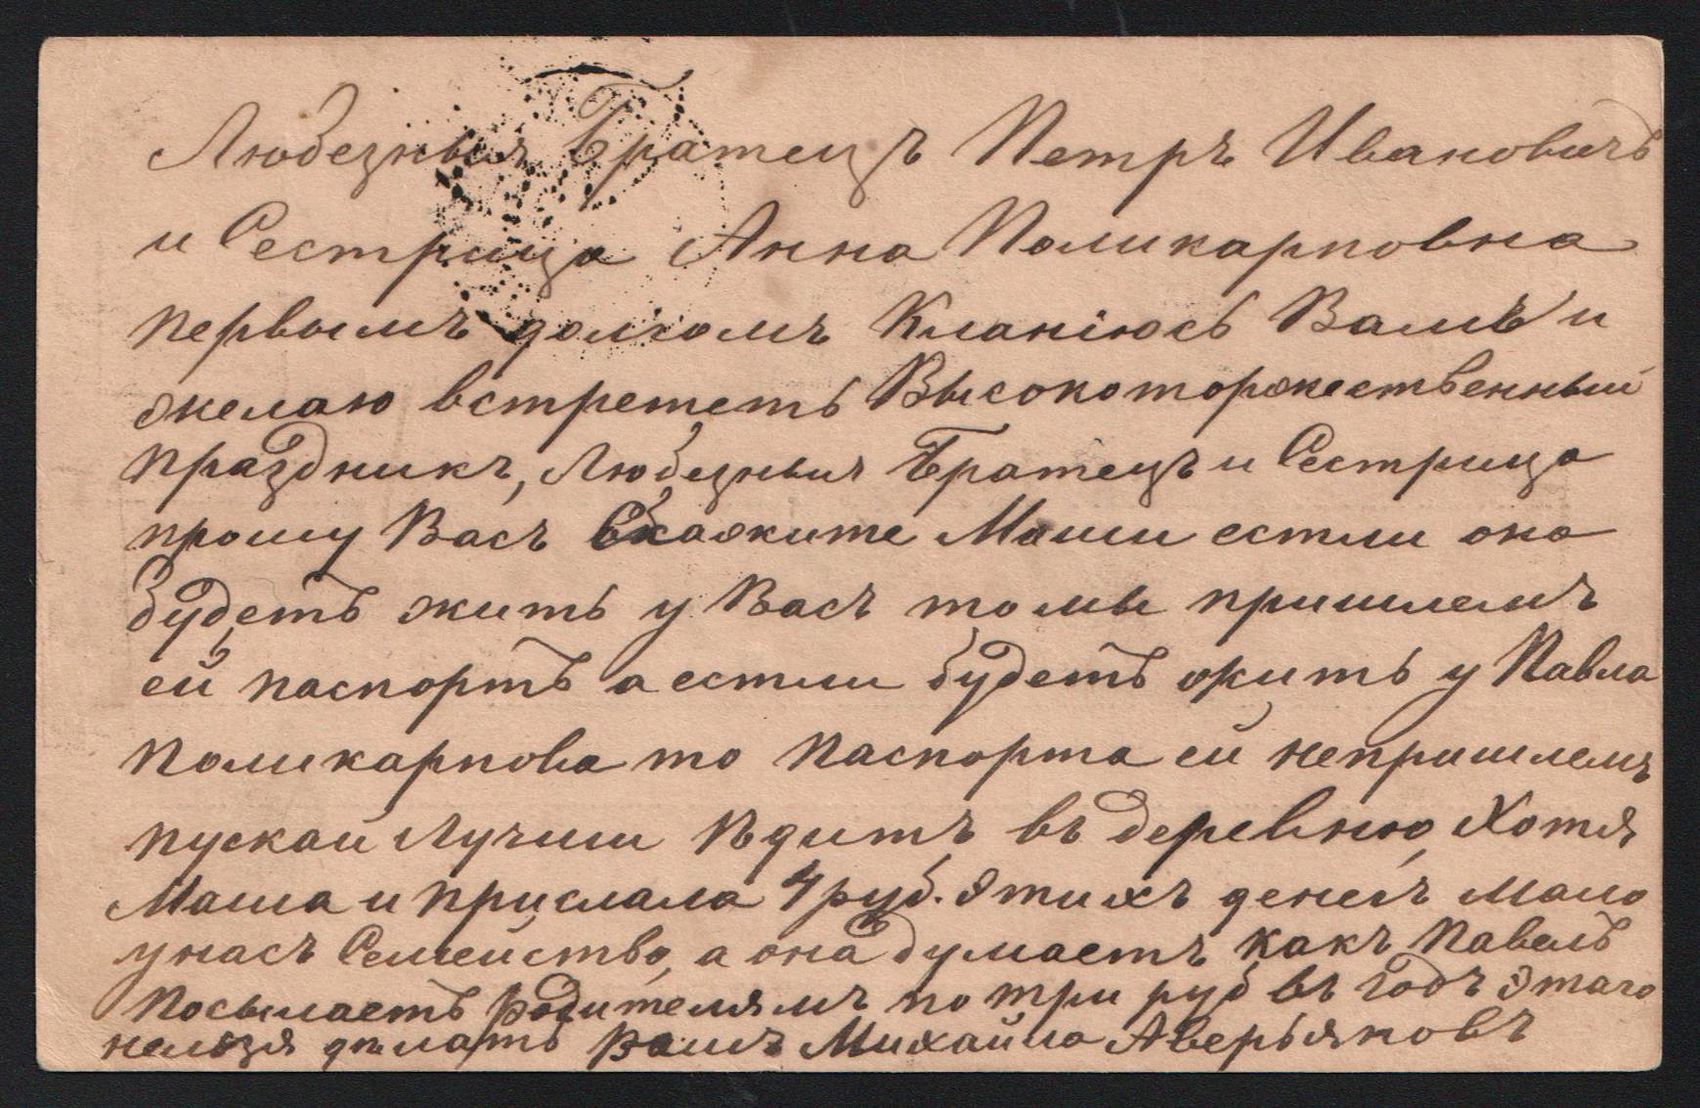 Любезныя Братецъ Петръ Ивановичъ
и Сестрица Анна Поликарповна
первымъ долгомъ Кланіюсь Вамъ и
желаю встрететь Высокоторжественный
праздникъ, Любезныя Братецъ и Сестрица
прошу Васъ Скажите Маши естли она
будетъ жить у Васъ то мы пришлемъ
ей паспортъ а естли будетъ жить у Павла
Поликарпова то паспорта ей непришлемъ
пускай Лучши Ѣдитъ въ деревню, Хотя
Маша и прислала 4 руб. Этихъ денегъ мало
унасъ Семейство, а она думаетъ какъ Павелъ
посылаетъ родителямъ по три руб въ годъ Этаго
нельзя дѣлать Вашъ Михайла Аверьяновъ